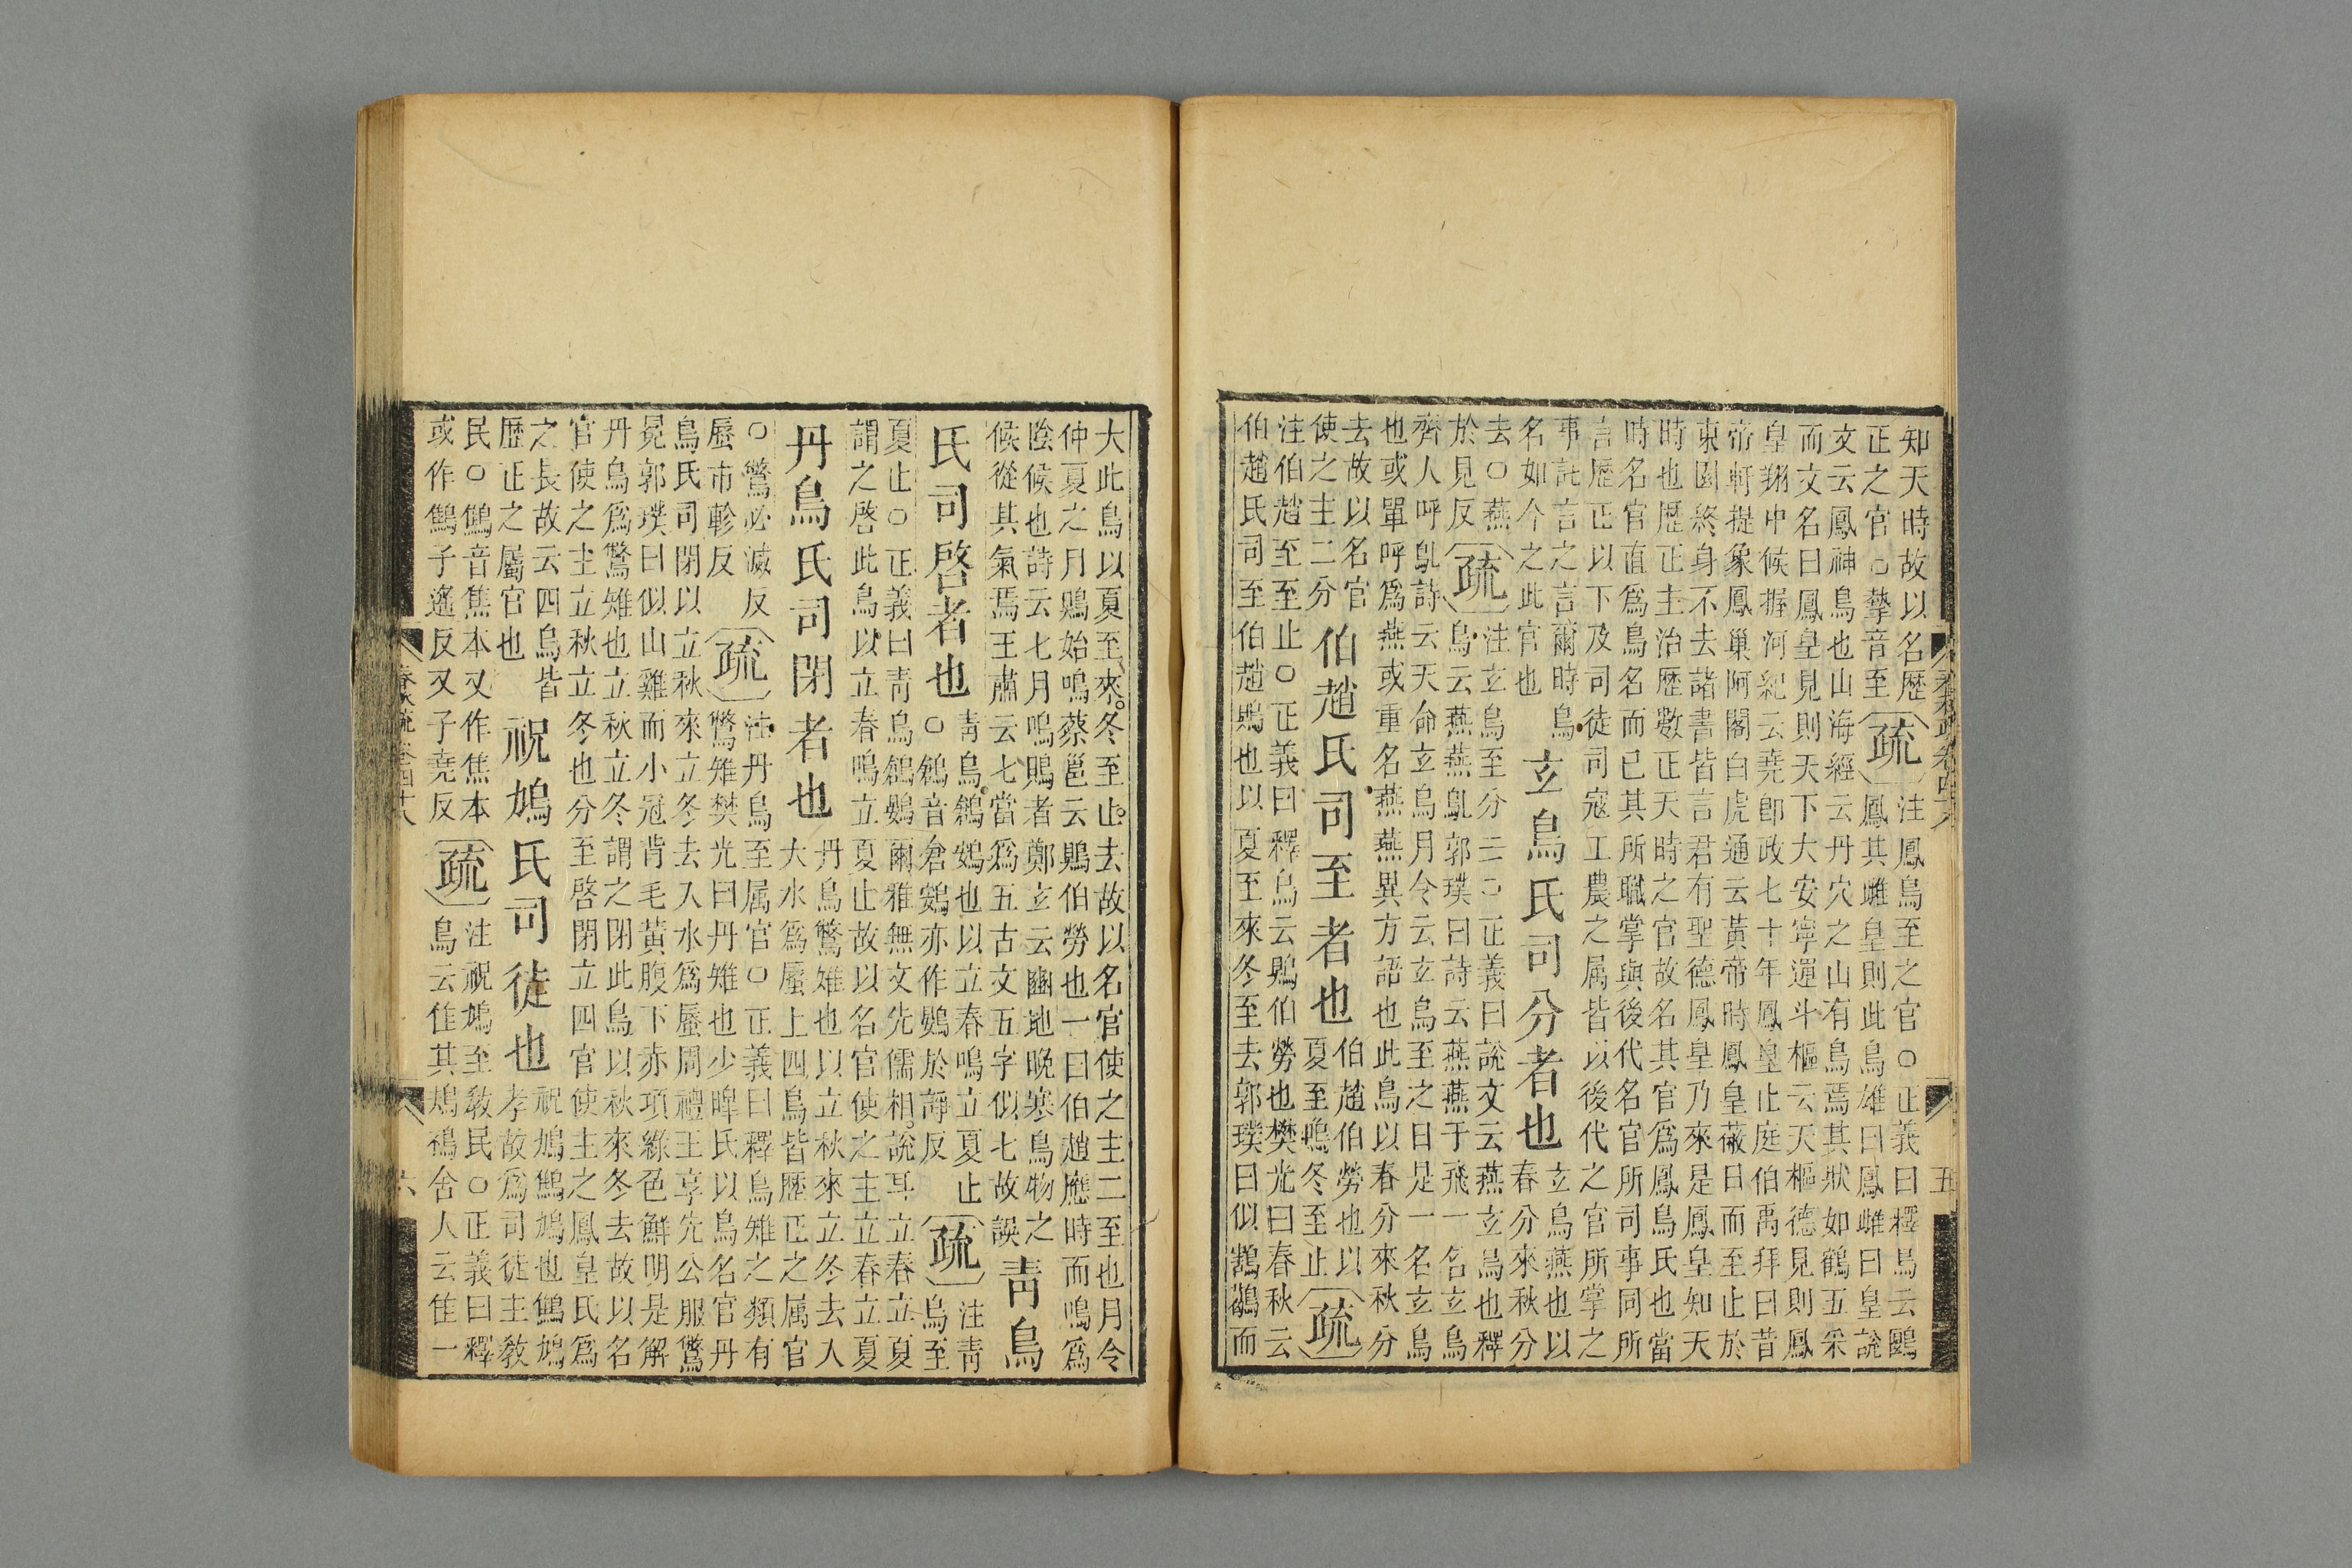 知天時故以名歷
正之官○摯音至
疏
注鳳鳥至之官○正義曰釋鳥云鶠
鳳其雌皇則此鳥雄曰鳳雌曰皇說
文云鳳神鳥也山海經云丹穴之山有鳥焉其狀如鶴五采
而文名曰鳳皇見則天下大安寧運斗樞云天樞德見則鳳
皇翔中候握河紀云堯卽政七十年鳳皇止庭伯禹拜曰昔
帝軒提象鳳巢阿閣白虎通云黃帝時鳳皇蔽日而至止於
東園終身不去諸書皆言君有聖德鳳皇乃來是鳳皇知天
時也歷正主治歷數正天時之官故名其官爲鳳鳥氏也當
時名官直爲鳥名而已其所職掌與後代名官所司事同所
言歷正以下及司徒司寇工農之属皆以後代之官所掌之
事託言之言爾時鳥
名如今之此官也
玄鳥氏司分者也
玄鳥燕也以
春分來秋分
去○燕
於見反
疏
注玄鳥至分二○正義曰說文云燕玄鳥也釋
鳥云燕燕鳦郭璞曰詩云燕燕于飛一名玄鳥
齊人呼鳦詩云天命玄鳥月令云玄鳥至之日是一名玄鳥
也或單呼爲燕或重名燕燕異方語也此鳥以春分來秋分
去故以名官
使之主二分
伯趙氏司至者也
伯趙伯勞也以
夏至鳴冬至止
疏
注伯趙至至止○正義曰釋鳥云鶪伯勞也樊光曰春秋云
伯趙氏司至伯趙鶪也以夏至來冬至去郭璞曰似鶷鶡而
五
大此鳥以夏至來冬至止去故以名官使之主二至也月令
仲夏之月鶪始鳴蔡邕云鶪伯勞也一曰伯趙應時而鳴爲
陰候也詩云七月鳴鶪者鄭玄云豳地晚寒鳥物之
候從其氣焉王肅云七當爲五古文五字似七故誤
靑鳥
氏司啓者也
靑鳥鶬鴳也以立春鳴立夏止
○鶬音倉鴳亦作鷃於諫反
疏
注靑
鳥至
夏止○正義曰靑鳥鶬鷃爾雅無文先儒相說耳立春立夏
謂之啓此鳥以立春鳴立夏止故以名官使之主立春立夏
丹鳥氏司閉者也
丹鳥鷩雉也以立秋來立冬去入
大水爲蜃上四鳥皆歷正之属官
○鷩必滅反
蜃市軫反
疏
注丹鳥至属官○正義曰釋鳥雉之類有
鷩雉樊光曰丹雉也少皥氏以鳥名官丹
鳥氏司閉以立秋來立冬去入水爲蜃周禮王享先公服鷩
冕郭璞曰似山雞而小冠背毛黃腹下赤項綠色鮮明是解
丹鳥爲鷩雉也立秋立冬謂之閉此鳥以秋來冬去故以名
官使之主立秋立冬也分至啓閉立四官使主之鳳皇氏爲
之長故云四鳥皆
歷正之屬官也
祝鳩氏司徒也
祝鳩鷦鳩也鷦鳩
孝故爲司徒主敎
民○鷦音焦本又作焦本
或作鷦子遙反又子堯反
疏
注祝鳩至敎民○正義曰釋
鳥云隹其鳺鴀舍人云隹一
六